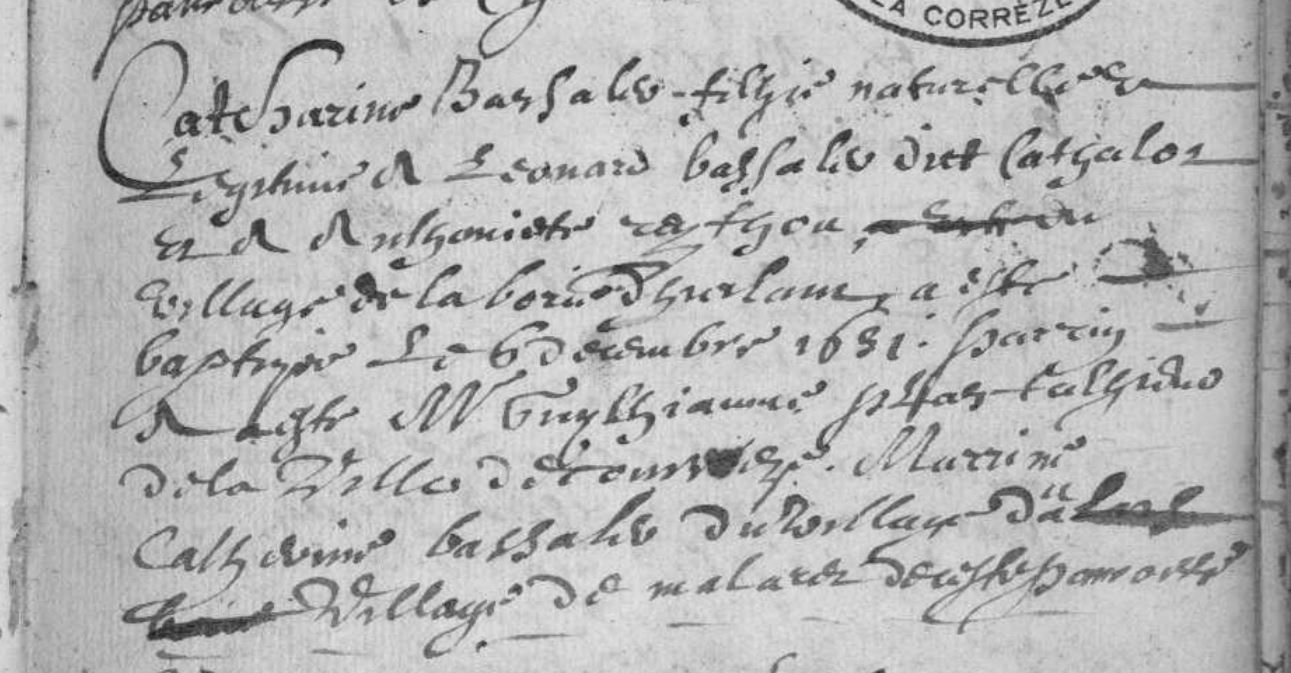 LA CORRÈZE
Catcharine Bassaler filhie naturelle et
Legitime de Leonard bassaler dict Cathalot
et de Anthoniete reythou, du
village de la borie dhurlam, a este
baptizee Le 6 decembre 1631. parrin
a este Mr Guylhiaume
de la Ville de . Marrine
Catherine bassaler du village du
Village de malarez de ceste parroesse